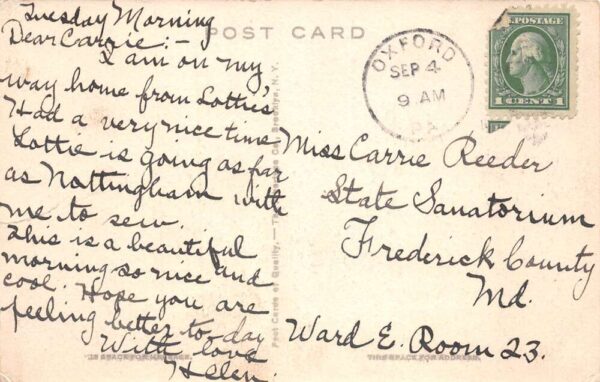 Tuesday Morning
Dear Carrie:-
I am on my
way home from Lottie's
Had a very nice time
Lottie is going as far
as Nottingham with
me to sew.
This is a beautiful
morning so nice and
cool. Hope you are
feeling better to-day
With love
Helen.
POST CARD
OXFORD
SEP 4
9 AM
PA.
U.S. POSTAGE
1 CENT 1
Miss Carrie Reeder
State Sanatorium
Frederick County
Md.
Ward E. Room 23.
Post Cards of Quality. — The Co., Brooklyn, N.Y.
THIS SPACE FOR ADDRESS.